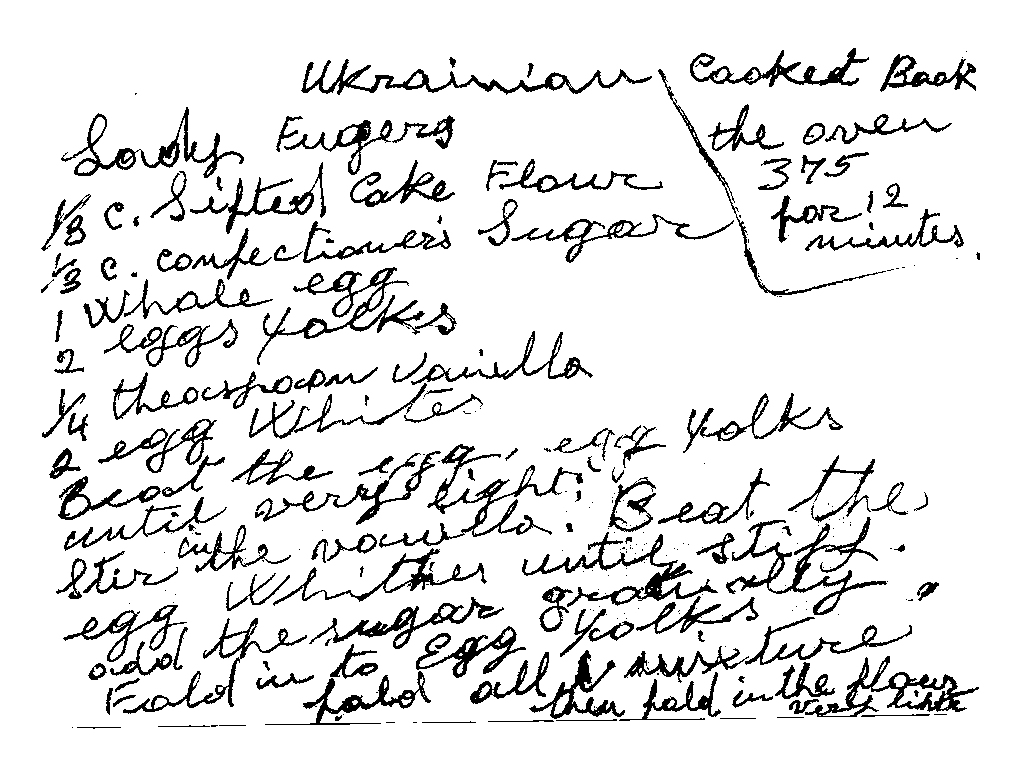 Ukrainian
Cooked Book
the oven
375
for 12
minutes.
Lady Fugers
1/3 c. Sifted Cake Flour
1/3 c. confectioner's Sugar
1 Whole egg
2 eggs Yolks
1/4 theaspoon vanilla
2 egg Whites
Beat the egg, egg Yolks
until very light;
Stir in the vanilla. Beat the
egg Whites until stiff.
add the sugar gradually.
Fold in to Egg Yolks
fold all mixture
then fold in the flour
very